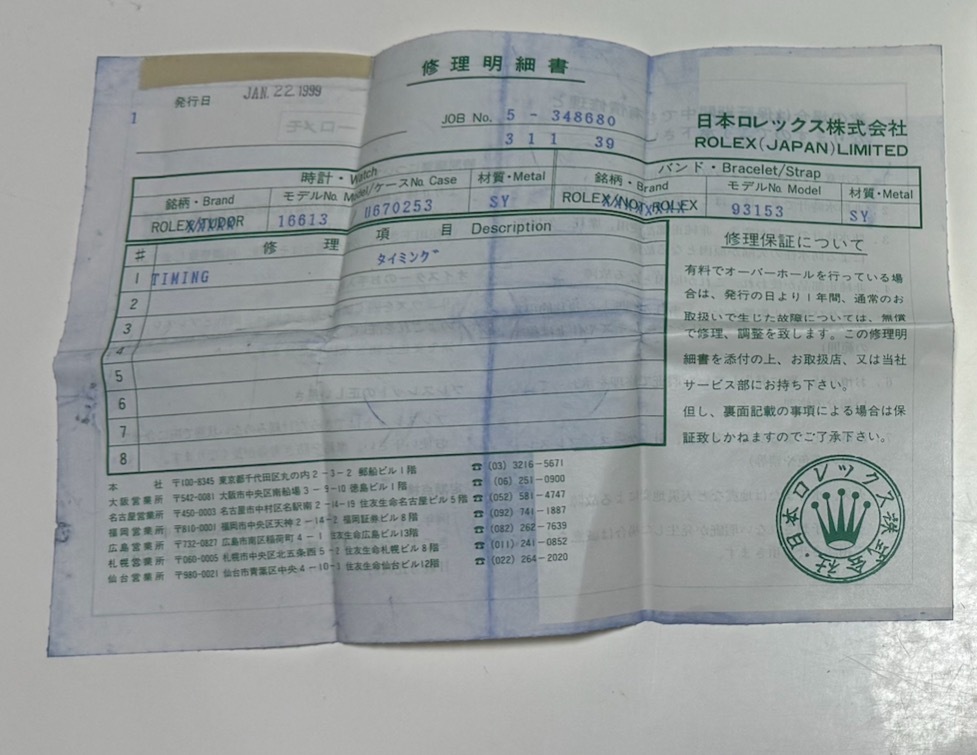 修理明細書
発行日 JAN. 22.1999
1
JOB No. 5 - 348680
3 1 1 39
日本ロレックス株式会社
ROLEX(JAPAN)LIMITED
時計・Watch
バンド・Bracelet/Strap
銘柄・Brand モデルNo. Model/ケースNo. Case 材質・Metal 銘柄・Brand モデルNo. Model 材質・Metal
ROLEX/TUDOR 16613 U670253 SY ROLEX/NOT ROLEX 93153 SY
# 修理項目 Description
1 TIMING タイミング
2
3
4
5
6
7
8
修理保証について
有料でオーバーホールを行っている場
合は、発行の日より1年間、通常のお
取扱いで生じた故障については、無償
で修理、調整を致します。この修理明
細書を添付の上、お取扱店、又は当社
サービス部にお持ち下さい。
但し、裏面記載の事項による場合は保
証致しかねますのでご了承下さい。
本社 〒100-8345 東京都千代田区丸の内2-3-2 郵船ビル1階 ☎(03) 3216-5671
大阪営業所 〒542-0081 大阪市中央区南船場3-9-10 徳島ビル1階 ☎(06) 251-0900
名古屋営業所 〒450-0003 名古屋市中村区名駅南2-14-19 住友生命名古屋ビル5階 ☎(052) 581-4747
福岡営業所 〒810-0001 福岡市中央区天神2-14-2 福岡証券ビル8階 ☎(092) 741-1887
広島営業所 〒732-0827 広島市南区稲荷町4-1 住友生命広島ビル13階 ☎(082) 262-7639
札幌営業所 〒060-0005 札幌市中央区北五条西5-2 住友生命札幌ビル8階 ☎(011) 241-0852
仙台営業所 〒980-0021 仙台市青葉区中央4-10-3 住友生命仙台ビル12階 ☎(022) 264-2020
日本ロレックス株式会社